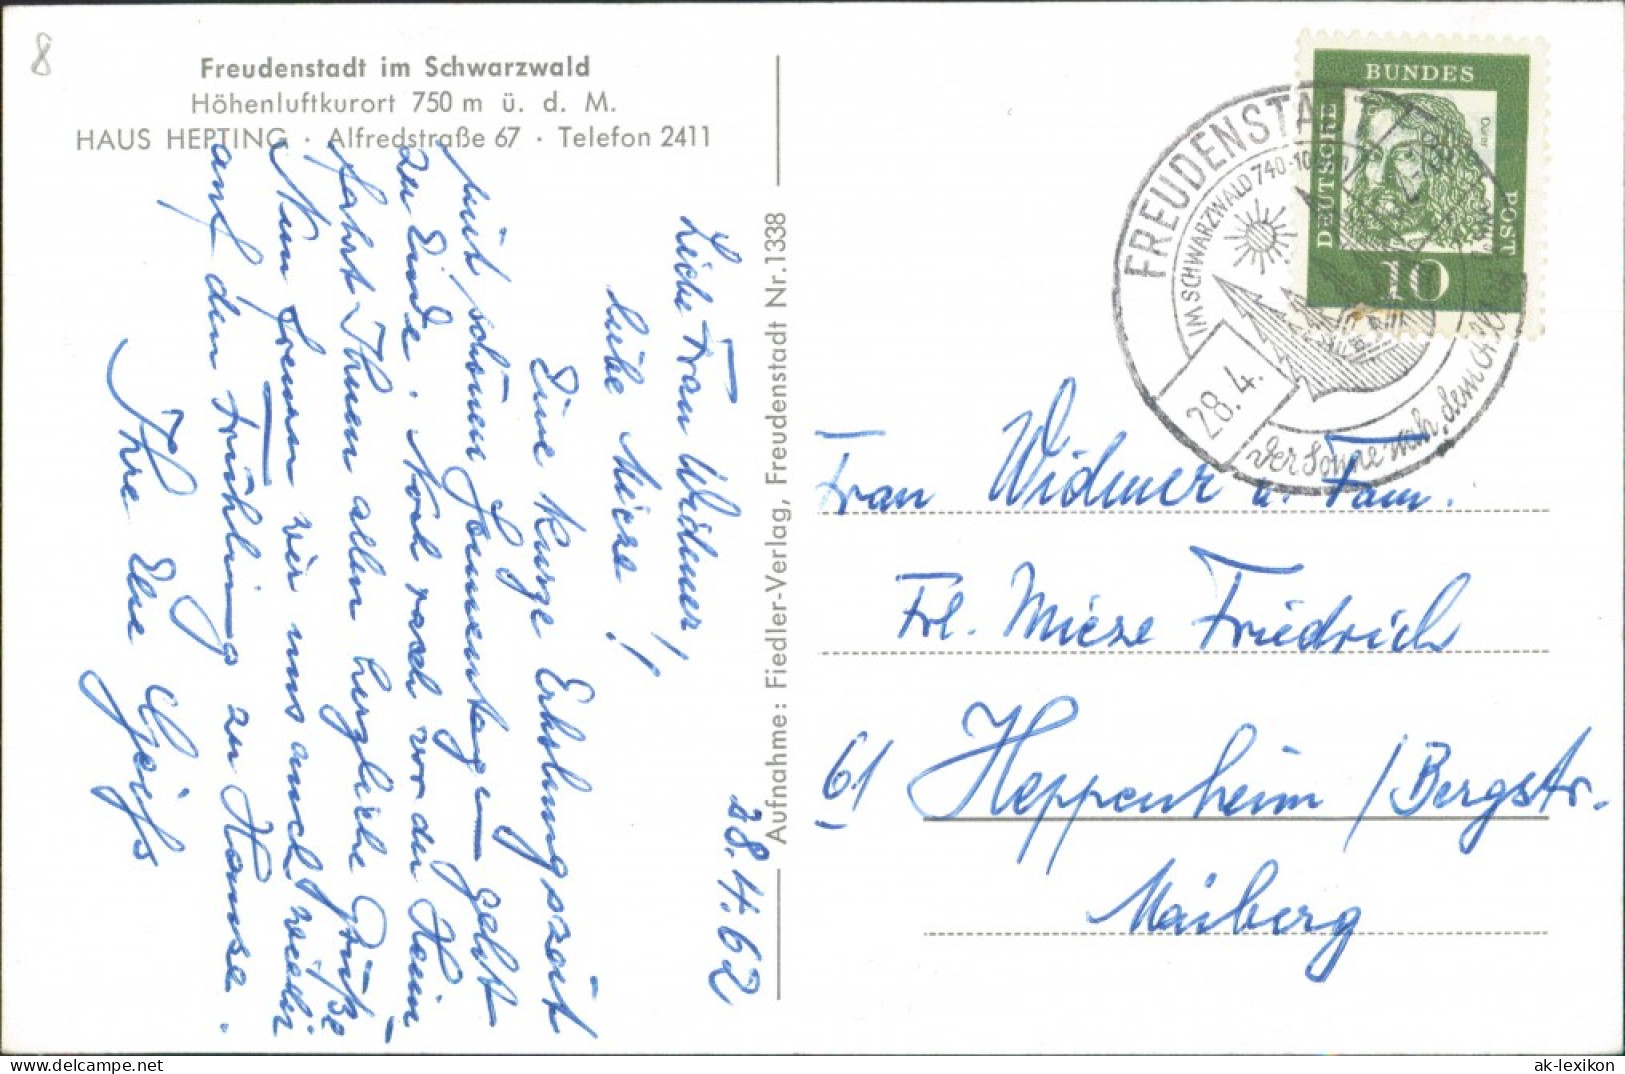 8
Freudenstadt im Schwarzwald
Höhenluftkurort 750 m ü. d. M.
HAUS HEPTING · Alfredstraße 67 · Telefon 2411
28.4.62
Liebe Frau Widmer,
liebe Mieze!
Eine kurze Erholungszeit
mit schönen Sonnentagen geht
zu Ende. Noch rasch vor der Heim
fahrt Ihnen allen herzliche Grüße
Nun freuen wir uns auch wieder
auf den Frühling zu Hause.
Ihre
Aufnahme: Fiedler-Verlag, Freudenstadt Nr. 1338
FREUDENSTADT
IM SCHWARZWALD 740-10
28.4.
Der Sonne nach, dem
DEUTSCHE
BUNDES
POST
Dürer
10
Frau Widmer u. Fam.
Frl. Mieze Friedrich
61 Heppenheim / Bergstr.
Maiberg
hippostcard.com
ak-lexikon